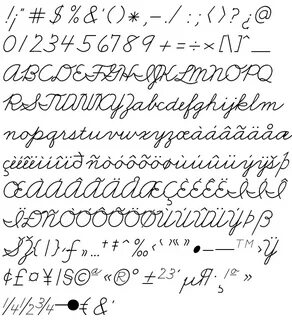 !¡"#$%&'()*,-./:;‹›?¿@
0123456789+=÷×[\]^_
ABCDEFGHIJKLMNOPQ
RSTUVWXYZabcdefghijklm
nopqrstuvwxyzœàáâãäåæ
çèéêëìíîïðñòóôõöøùúûüýÿšþ
ŒÀÁÂÃÄÅÆÇÈÉÊËÌÍÎ
ÏÐÑÒÓÔÕÖØÙÚÛÜÝÞβ
ŠŽ{|}·ƒ„…†‡ˆ‰‹‘’“”•–—™›Ÿ
¢£¤¥|§©ª«®°±²³´µ¶·¸¹º»
¼½¾—●€&'